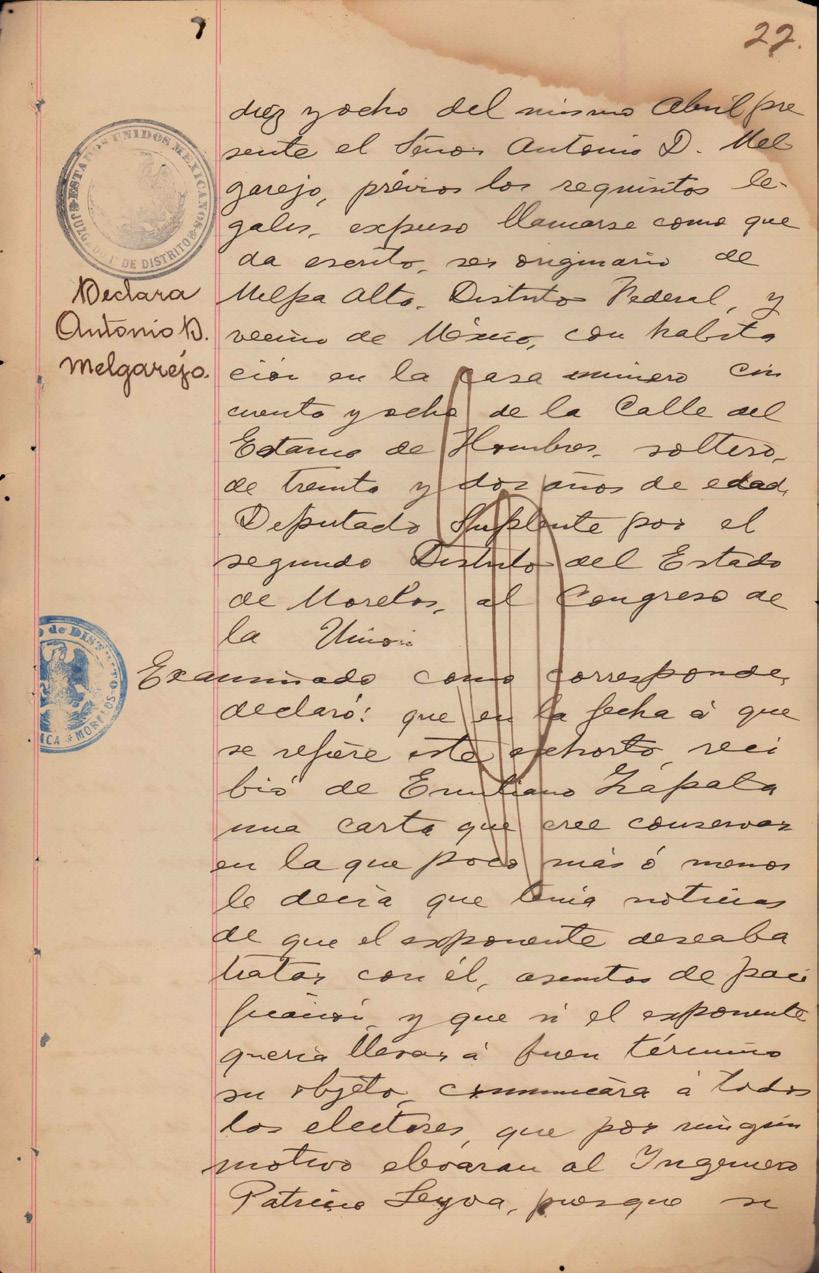 22.
ESTADOS UNIDOS MEXICANOS
JUZGADO 1º DE DISTRITO
Declara
Antonio D.
Melgarejo.
diez y ocho del mismo Abril pre
sente el Señor Antonio D. Mel
garejo, prévios los requisitos le-
gales, expuso llamarse como que
da escrito, ser originario de
Milpa Alta, Distrito Federal, y
vecino de México, con habita
ción en la casa número cin
cuenta y ocho de la Calle del
Estanco de Hombres, soltero,
de treinta y dos años de edad,
Deputado Suplente por el
segundo Distrito del Estado
de Morelos, al Congreso de
la Unión.
Examinado como corresponde,
declaró: que en la fecha á que
se refiere este exhorto, reci
bió de Emiliano Zápata
una carta que cree conservar
en la que poco más ó menos
le decía que tenía noticias
de que el exponente deseaba
tratar con él, asuntos de paci
ficación, y que si el exponente
quería llevar á buen término
su objeto, comunicara á todos
los electores, que por ningún
motivo eleváran al Ingeniero
Patricio Leyva, porque si
DE DISTRITO
MORELOS